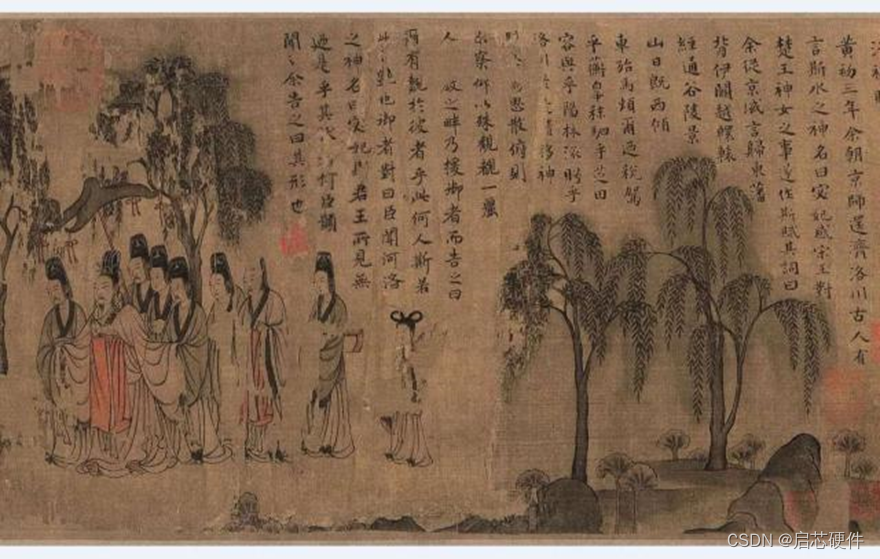 黃初三年余朝京師還濟洛川古人有
言斯水之神名曰宓妃感宋玉對
楚王神女之事遂作斯賦其詞曰
余從京域言歸東藩
背伊闕越轘轅
經通谷陵景
山日既西傾
車殆馬煩爾迺稅駕
乎蘅皋秣駟乎芝田
容與乎陽林流眄乎
洛川於 精移神
思散俯則
未察仰以殊觀覩一麗
人 之畔乃援御者而告之曰
爾有覿於彼者乎此何人斯若
此 豔也御者對曰臣聞河洛
之神名曰宓妃 君王所見無
迺是乎其 何臣願
聞之余告之曰其形也
CSDN @启芯硬件